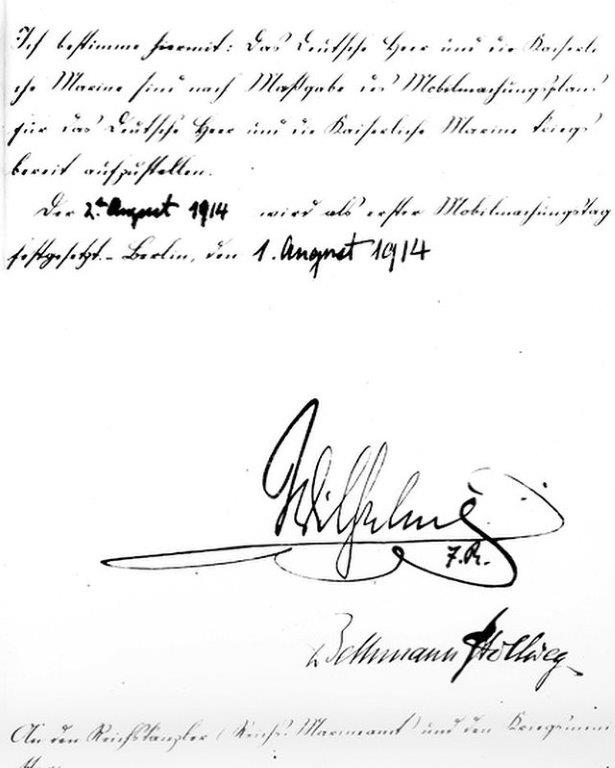 Ich bestimme hiermit: Das Deutsche Heer und die Kaiserli
che Marine sind nach Maßgabe des Mobilmachungsplans
für das Deutsche Heer und die Kaiserliche Marine kriegs
bereit aufzustellen.
Der 2te August 1914 wird als erster Mobilmachungstag
festgesetzt. – Berlin, den 1. August 1914
Wilhelm
I. R.
Bethmann Hollweg
An den Reichskanzler (Reichs-Marineamt) und den Kriegsmini